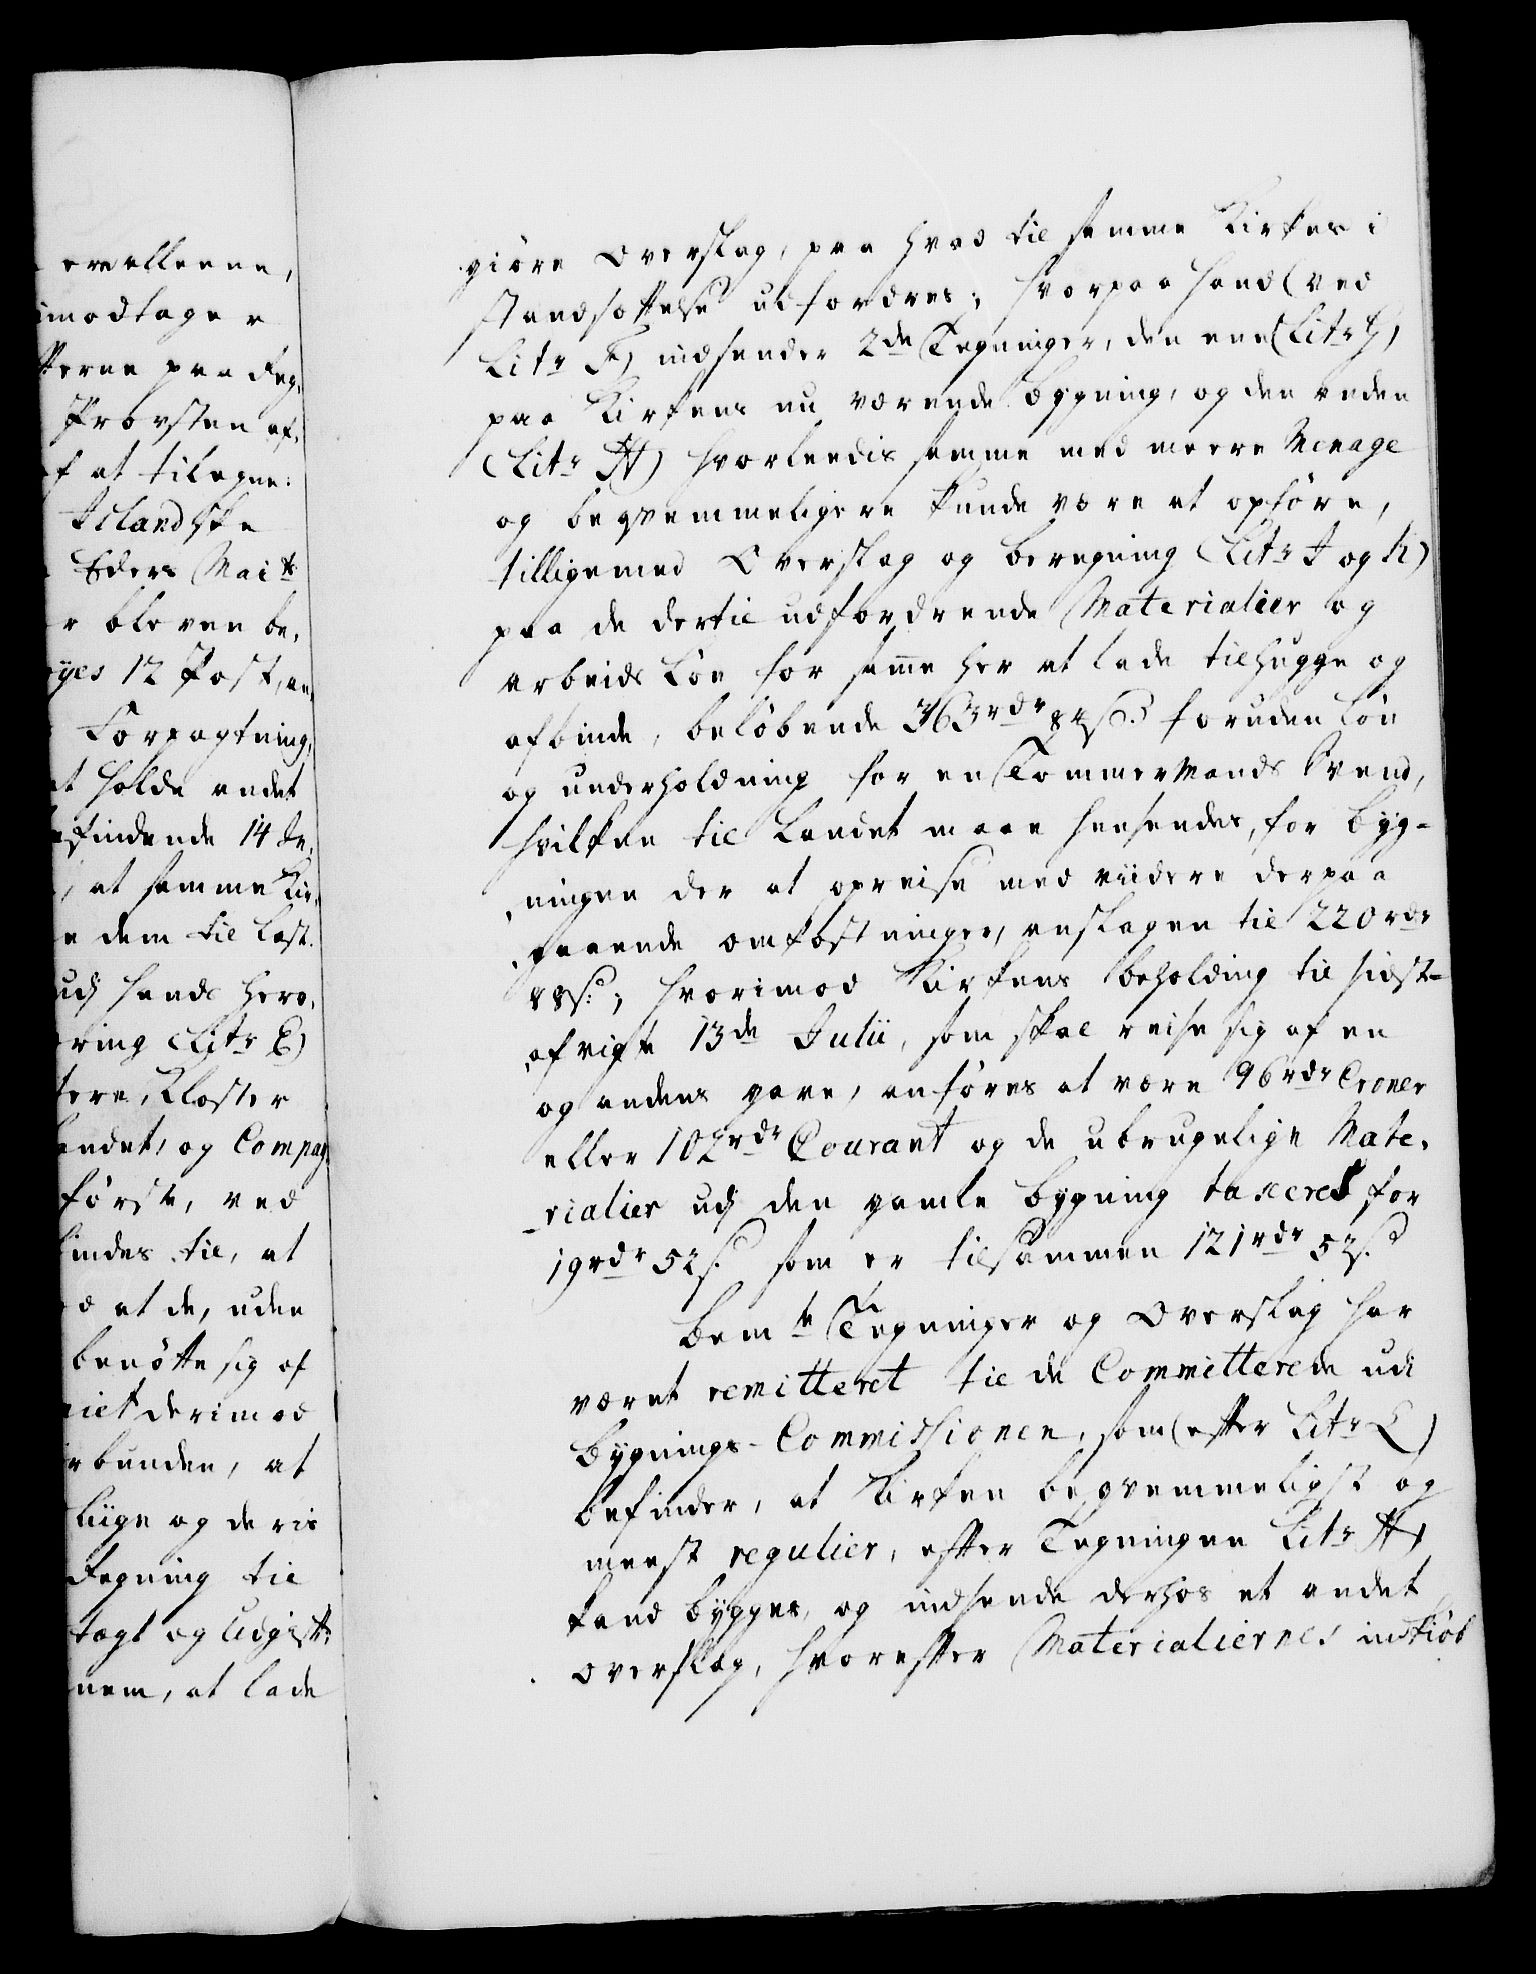 ermelleene,
imodtager
fterne paa Feg.
Provsten af.
f at tilegne:
Islandske
Eders Mai.ts
r bleven be,
øyes 12 Post, an
Forpagtning,
at holde andet
findende 14 de.
, at samme Kir,
e dem til Last.
udj hands hero,
ring (Litr E)
tere, Kloster
andet, og Compag.
første, ved
findes til, at
d at de, uden
benøtte sig af
niet derimod
rbunden, at
liige og de ris
Fegning til
tægt og Udgift,
nem, at lade
giøre Overslag, paa hvad til samme Kirkes i
standsættelse udfordres; hvorpaa hand (ved
Litr F) indsender 2de Tegninger, den ene (Litr G)
paa Kirkens nu værende Bygning, og den anden
(Litr H) hvorleedis samme med meere Menage
og beqvemmeligere kunde være at opføre,
tilligemed Overslag og Beregning (Litr I og K)
paa de dertil udfordrende Materialier og
Arbeids Løn for samme her at lade tilhugge og
afbinde, beløbende 363 rdr 82 s. foruden Løn
og underholdning for en TømmerMands Svend,
hvilken til Landet maae hensendes, for Byg-
ningen der at opreise med viidere derpaa
gaaende omkostninger, anslagen til 220 rdr
88 s.; hvorimod Kirkens beholding til sidst-
afvigte 13de Julii, som skal reise sig af en
og andens gave, anføres at være 96 rdr Croner
eller 102 rdr Courant og de ubrugelige Mate-
rialier udj den gamle bygning taxeret for
19 rdr 52 s. som er tilsammen 121 rdr 52 s.
Bem.te Tegninger og Overslag har
været remitteret til de Committerede udi
Bygnings-Commissionen, som (efter Litr L)
befinder, at Kirken beqvemmeligst og
meest regulier, efter Tegningen Litr H,
kand bygges, og indsende derhos et andet
Overslag, hvorefter Materialiernes indkiøb